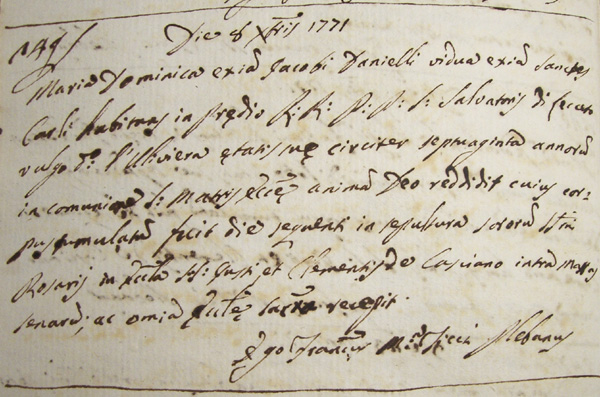 Die 8 Xbris 1771
Maria Dominica exiā Jacobi Danielli vidua exiā
Carli habitans in predio R: R: P: P: S: Salvatoris di
vulgo dº l'Uliviera ętatis suę circiter septuaginta annorū
in comunione S: Matris Ecclę animā Deo reddidit cuius cor=
pus tumulatū fuit die sequenti in sepultura sororū SSmi
Rosarij in Eccla SS: Justi et Clementis de Casciano intra
senarū; ac omia Ecclę sacrā recepit.
Ego Franćus Plebanus